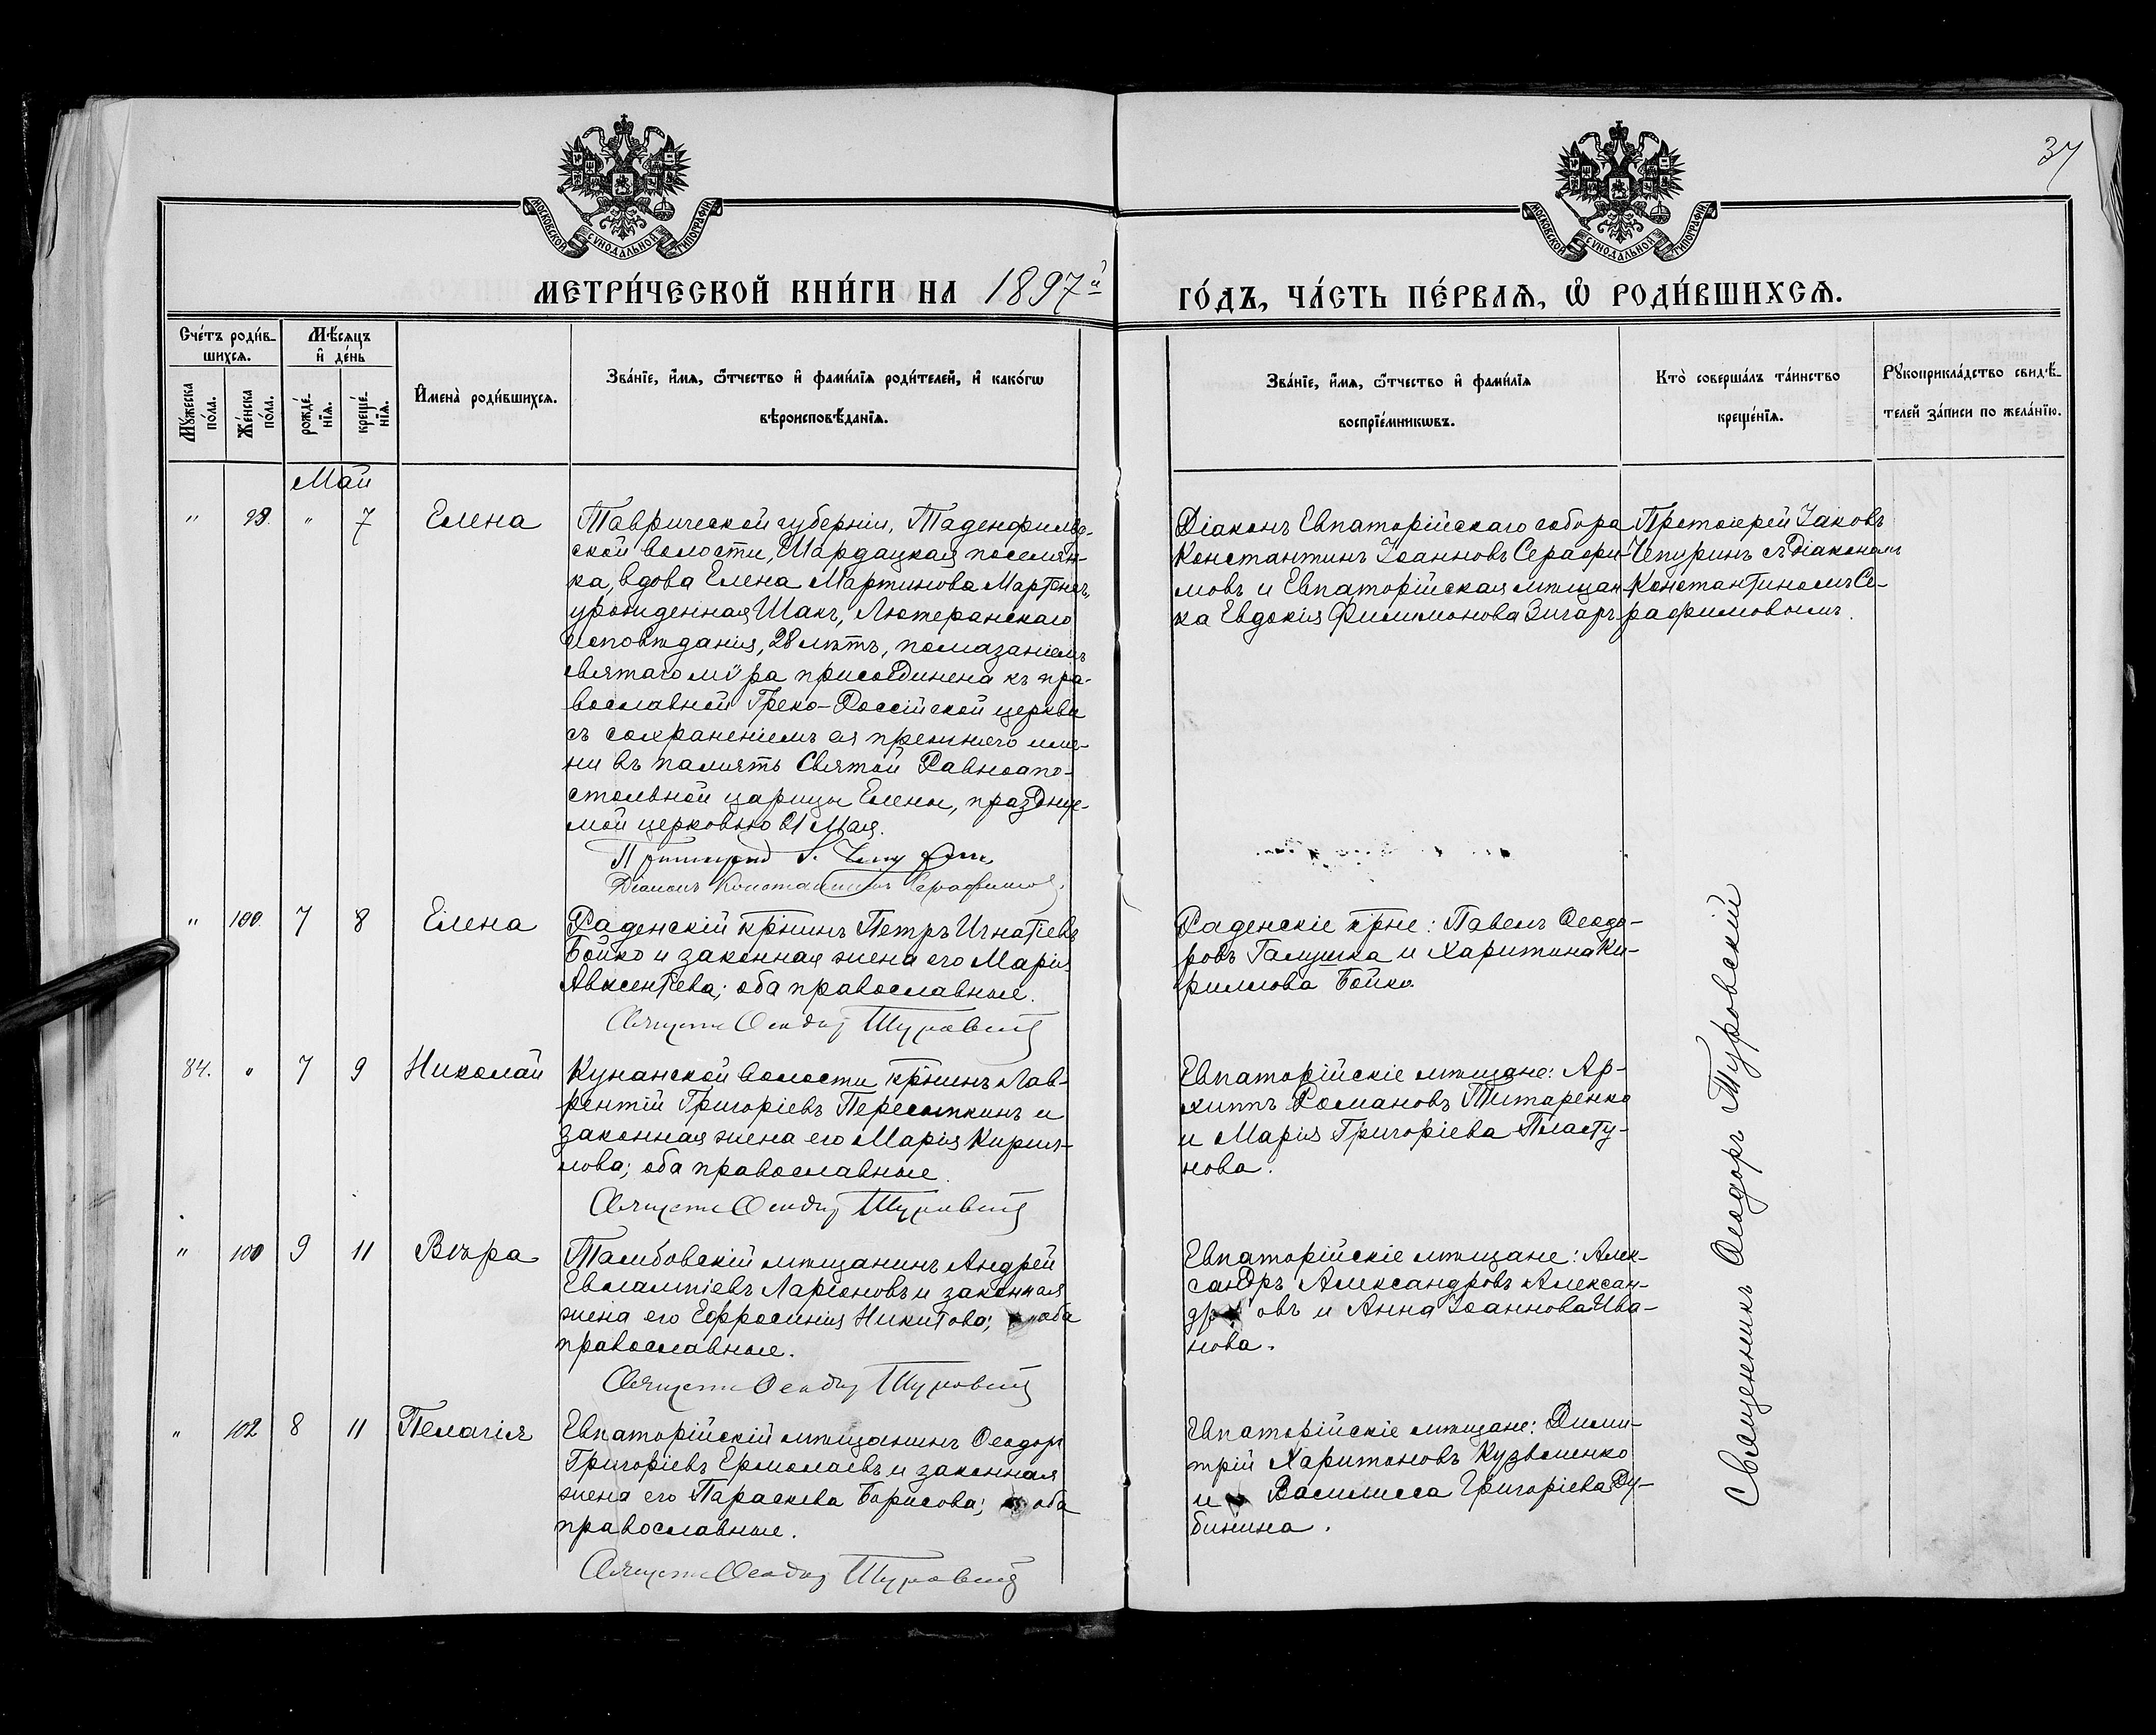 37
МОСКОВСКОЙ СУНОДАЛЬНОЙ ТИПОГРАФІИ
МОСКОВСКОЙ СУНОДАЛЬНОЙ ТИПОГРАФІИ
МЕТРИ́ЧЕСКОЙ КНИ́ГИ НА 1897й
ГО́ДЪ, ЧА́СТЬ ПЕ́РВАѦ, Ѡ҆ РОДИ́ВШИХСѦ.
Сче́тъ роди́в-
шихсѧ.
Мѣ́сѧцъ
и҆ де́нь
Мꙋ́жеска
по́ла.
Же́нска
по́ла.
рожде́-
нїѧ.
креще́-
нїѧ.
И҆мена̀ роди́вшихсѧ.
Зва́нїе, и҆́мѧ, ѻ҆́тчество и҆ фами́лїѧ роди́телей, и҆ како́гѡ
вѣроисповѣ́данїѧ.
Зва́нїе, и҆́мѧ, ѻ҆́тчество и҆ фами́лїѧ
воспрїе́мникѡвъ.
Кто̀ соверша́лъ та́инство
креще́нїѧ.
Рꙋкоприкла́дство свидѣ́-
телей за́писи по жела́нїю.
Май
" 98. " 7 Елена
Таврической губерніи,
ской волости, поселян-
ка, вдова Елена Мартинова
урожденная Шакъ, Лютеранскаго
исповѣданія, 28 лѣтъ, помазаніемъ
святаго мѵра присоединена къ пра-
вославной Греко-Россійской церкви
съ сохраненіемъ ея прежняго име-
ни въ память Святой Равноапо-
стольной царицы Елены, праздnуе-
мой церковью 21 Мая.
Протоіерей І. Чепуринъ
Діаконъ Константинъ Серафимовъ.
Діаконъ Евпаторійскаго собора
Константинъ Іоанновъ Серафи-
мовъ и Евпаторійская мѣщан-
ка Евдокія Филимонова
Протоіерей Іаковъ
Чепуринъ съ Діакономъ
Константиномъ Се-
рафимовымъ.
" 100. 7 8 Елена
Раденскій крнинъ Петръ Игнатіевъ
Бойко и законная жена его Марія
Авксентіева; оба православные.
Священ Ѳеодоръ Туровскій
Раденскіе крне: Павелъ Ѳеодо-
ровъ Галушка и Харитина Ки-
риллова Бойко.
84. " 7 9 Николай
Кунанской волости крнинъ Лав-
рентій Григоріевъ Пересыпкинъ и
законная жена его Марія Кирил-
лова; оба православные.
Священ Ѳеодоръ Туровскій
Евпаторійскіе мѣщане: Ар-
хиппъ Романовъ Титаренко
и Марія Григоріева Пласту-
нова.
" 100 9 11 Вѣра
Тамбовскій мѣщанинъ Андрей
Евлампіевъ Ларіоновъ и законная
жена его Ефросинія Никитова; оба
православные.
Священ Ѳеодоръ Туровскій
Евпаторійскіе мѣщане: Алек-
сандръ Александровъ Алексан-
дровъ и Анна Іоаннова Ива-
нова.
" 102 8 11 Пелагія
Евпаторійскій мѣщанинъ Ѳеодоръ
Григоріевъ Ермолаевъ и законная
жена его Параскева Борисова; оба
православные.
Священ Ѳеодоръ Туровскій
Евпаторійскіе мѣщане: Дими-
трій Харитоновъ Кузьменко
и Василисса Григоріева Ду-
бинина.
Священникъ Ѳеодоръ Туровскій